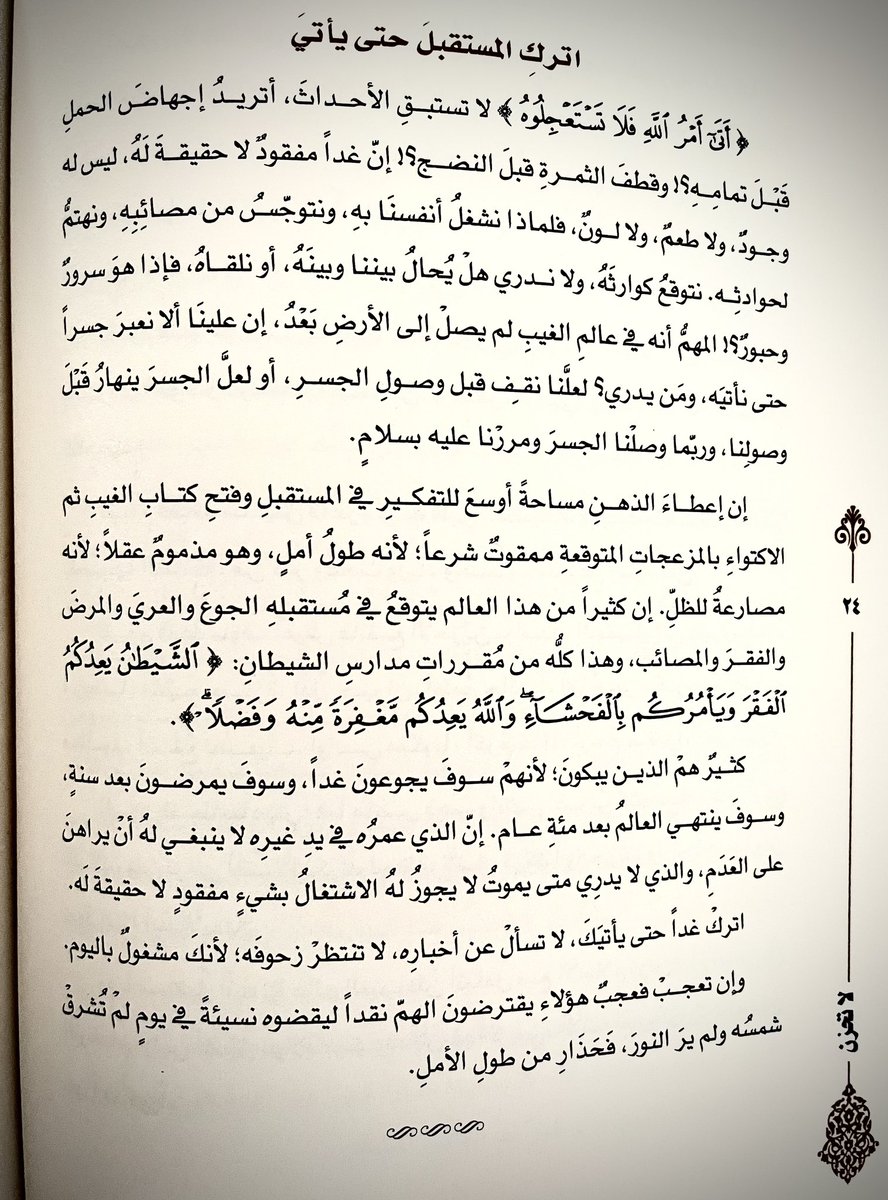 اتركِ المستقبلَ حتى يأتيَ
﴿ أَتَىٰٓ أَمْرُ ٱللَّهِ فَلَا تَسْتَعْجِلُوهُ ﴾ لا تستبقِ الأحداثَ، أتريدُ إجهاضَ الحملِ
قَبْلَ تمامِهِ؟! وقطفَ الثمرةِ قبلَ النضجِ؟! إنّ غداً مفقودٌ لا حقيقةَ لَهُ، ليس له
وجودٌ، ولا طعمٌ، ولا لونٌ، فلماذا نشغلُ أنفسنَا بهِ، ونتوجّسُ من مصائِبِهِ، ونهتمُّ
لحوادثِه. نتوقعُ كوارثَهُ، ولا ندري هلْ يُحالُ بيننا وبينَهُ، أو نلقاهُ، فإذا هوَ سرورٌ
وحبورٌ؟! المهمُّ أنه في عالمِ الغيبِ لم يصلْ إلى الأرضِ بَعْدُ، إن علينَا ألا نعبرَ جسراً
حتى نأتيَه، ومَن يدري؟ لعلَّنا نقِف قبل وصولِ الجسرِ، أو لعلَّ الجسرَ ينهارُ قَبْلَ
وصولِنا، وربّما وصلْنا الجسرَ ومررْنا عليه بسلامٍ.
إن إعطاءَ الذهنِ مساحةً أوسعَ للتفكيرِ في المستقبلِ وفتحِ كتابِ الغيبِ ثم
الاكتواءِ بالمزعجاتِ المتوقعةِ ممقوتٌ شرعاً؛ لأنه طولُ أملٍ، وهو مذمومٌ عقلاً؛ لأنه
مصارعةُ للظلِّ. إن كثيراً من هذا العالم يتوقعُ في مُستقبلهِ الجوعَ والعريَ والمرضَ
والفقرَ والمصائب، وهذا كلُّه من مُقرراتِ مدارسِ الشيطانِ: ﴿ ٱلشَّيْطَٰنُ يَعِدُكُمُ
ٱلْفَقْرَ وَيَأْمُرُكُم بِٱلْفَحْشَآءِ ۖ وَٱللَّهُ يَعِدُكُم مَّغْفِرَةً مِّنْهُ وَفَضْلًا ۗ ﴾.
كثيرٌ همْ الذين يبكونَ؛ لأنهمْ سوفَ يجوعونَ غداً، وسوفَ يمرضونَ بعد سنةٍ،
وسوفَ ينتهي العالمُ بعد مئةِ عام. إنّ الذي عمرُه في يدِ غيرِه لا ينبغي لهُ أنْ يراهنَ
على العَدَمِ، والذي لا يدرِي متى يموتُ لا يجوزُ لهُ الاشتغالُ بشيءٍ مفقودٍ لا حقيقةَ لَه.
اتركْ غداً حتى يأتيَكَ، لا تسألْ عن أخبارِه، لا تنتظرْ زحوفَه؛ لأنكَ مشغولٌ باليوم.
وإن تعجبْ فعجبٌ هؤلاءِ يقترضونَ الهمّ نقداً ليقضوه نسيئةً في يومٍ لمْ تُشرقْ
شمسُه ولم يرَ النورَ، فَحَذَارِ من طولِ الأملِ.
٢٤
لا تحزن